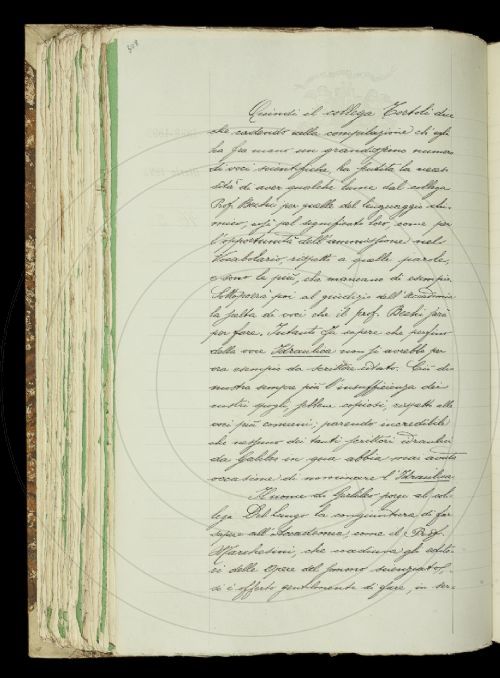 308
Quindi il collega Tortoli dice
che cadendo nella compilazione ch'egli
ha fra mano un grandissimo numero
di voci scientifiche, ha sentita la neces-
sità di aver qualche lume dal collega
Prof. Bechi per quelle del linguaggio chi-
mico, sì pel significato loro, come per
l'opportunità dell'ammissione nel
Vocabolario, rispetto a quelle parole,
e sono le più, che mancano di esempio.
Sottoporrà poi al giudizio dell'Accademia
la scelta di voci che il prof. Bechi sarà
per fare. Intanto fa sapere che perfino
della voce Idraulica non si avrebbe per
ora esempio da scrittore citato. Ciò di-
mostra sempre più l'insufficienza dei
nostri spogli, sebbene copiosi, rispetto alle
voci più comuni; parendo incredibile
che nessuno dei tanti scrittori idraulici
da Galileo in qua abbia mai avuto
occasione di nominare l'Idraulica.
Il nome di Galileo porge al col-
lega Del Lungo la congiuntura di far
sapere all'Accademia, come il Prof.
Marchesini, che coadiuva gli edito-
ri delle Opere del sommo scienziato,
si è offerto gentilmente di fare, in ser-